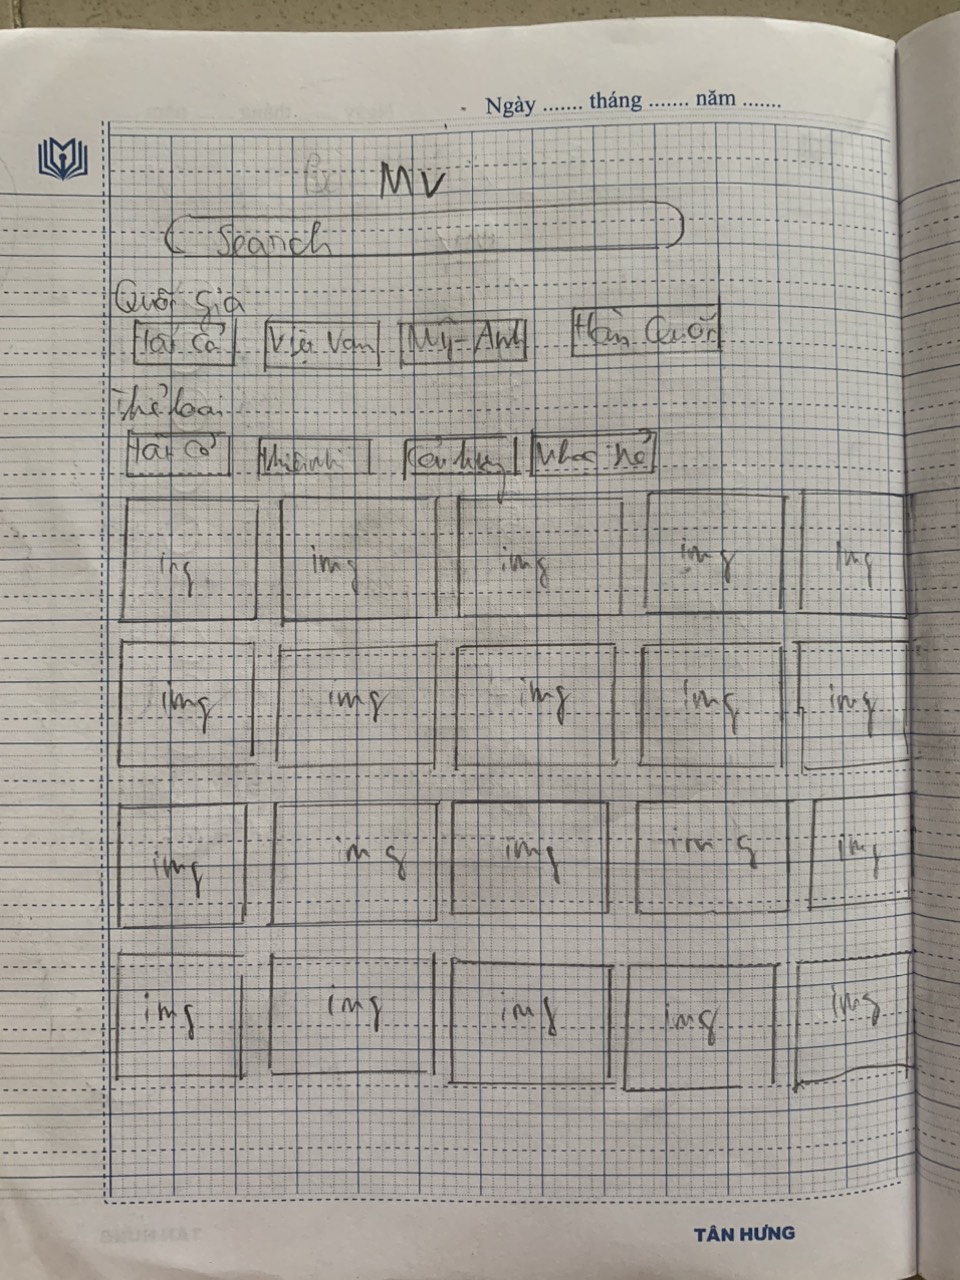 Ngày ....... tháng ....... năm .......
MV
Search
Quốc gia
Tất cả Việt Nam Mỹ-Anh Hàn Quốc
Thể loại
Tất cả Thiếu nhi Cải lương Nhạc trẻ
img img img img img
img img img img img
img img img img img
img img img img img
TÂN HƯNG